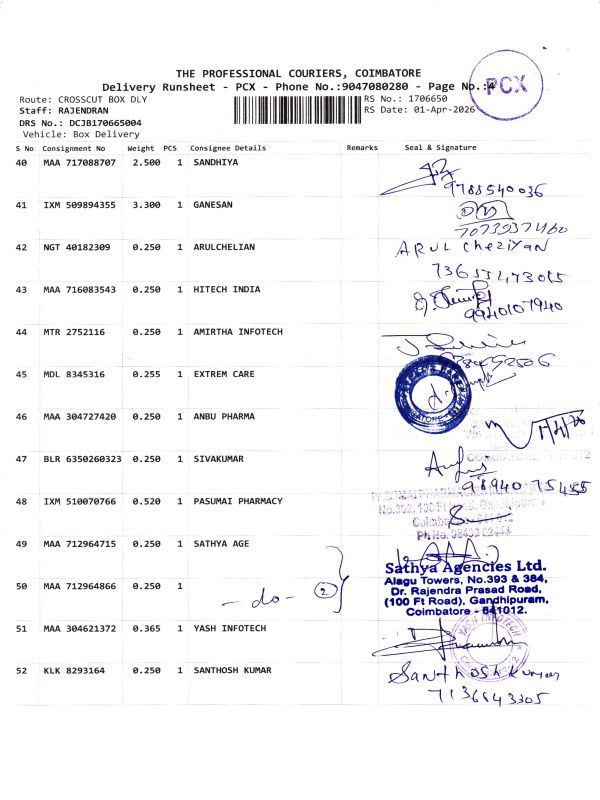 THE PROFESSIONAL COURIERS, COIMBATORE
Delivery Runsheet - PCX - Phone No.:9047080280 - Page No.:4
PCX
Route: CROSSCUT BOX DLY
RS No.: 1706650
Staff: RAJENDRAN
RS Date: 01-Apr-2026
DRS No.: DCJB170665004
Vehicle: Box Delivery
S No Consignment No Weight PCS Consignee Details Remarks Seal & Signature
40 MAA 717088707 2.500 1 SANDHIYA
9788540036
41 IXM 509894355 3.300 1 GANESAN
7073937460
42 NGT 40182309 0.250 1 ARULCHELIAN ARUL Cheziyan
43 MAA 716083543 0.250 1 HITECH INDIA
9940107940
44 MTR 2752116 0.250 1 AMIRTHA INFOTECH
45 MDL 8345316 0.255 1 EXTREM CARE
46 MAA 304727420 0.250 1 ANBU PHARMA
1/4/26
47 BLR 6350260323 0.250 1 SIVAKUMAR
98940 75455
48 IXM 510070766 0.520 1 PASUMAI PHARMACY
49 MAA 712964715 0.250 1 SATHYA AGE
Sathya Agencies Ltd.
Alagu Towers, No.393 & 384,
Dr. Rajendra Prasad Road,
(100 Ft Road), Gandhipuram,
Coimbatore - 641012.
50 MAA 712964866 0.250 1
- do - 2
51 MAA 304621372 0.365 1 YASH INFOTECH
YASH INFOTECH
52 KLK 8293164 0.250 1 SANTHOSH KUMAR Santhosh kumar
7136843305